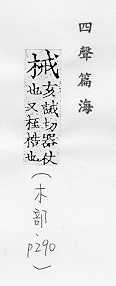 四聲篇海
械亥誡切器仗
也又桎梏也
(木部、p290)